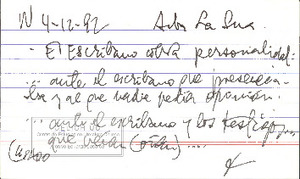 IV 4-12-92
- El Escribano cobra personalidad:
... ante el escribano que presencia-
ba y al que nadie pedía opinión.
... ante el escribano y los testigos
que veían (oían) ....